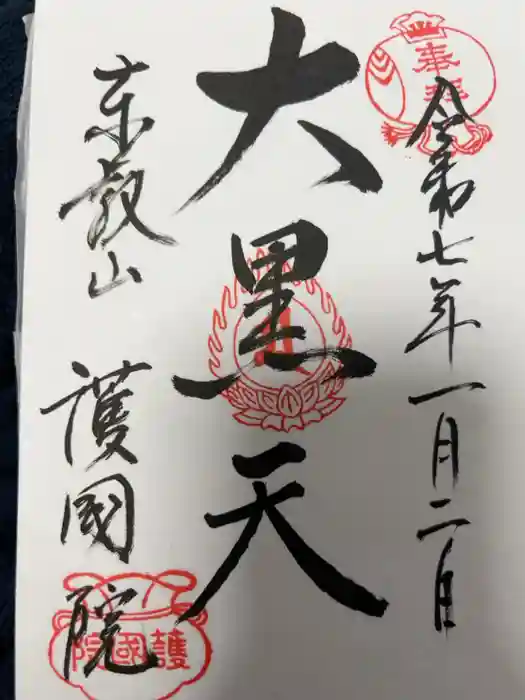 奉拝
令和七年一月二日
大黒天
東叡山
護國院
護國院